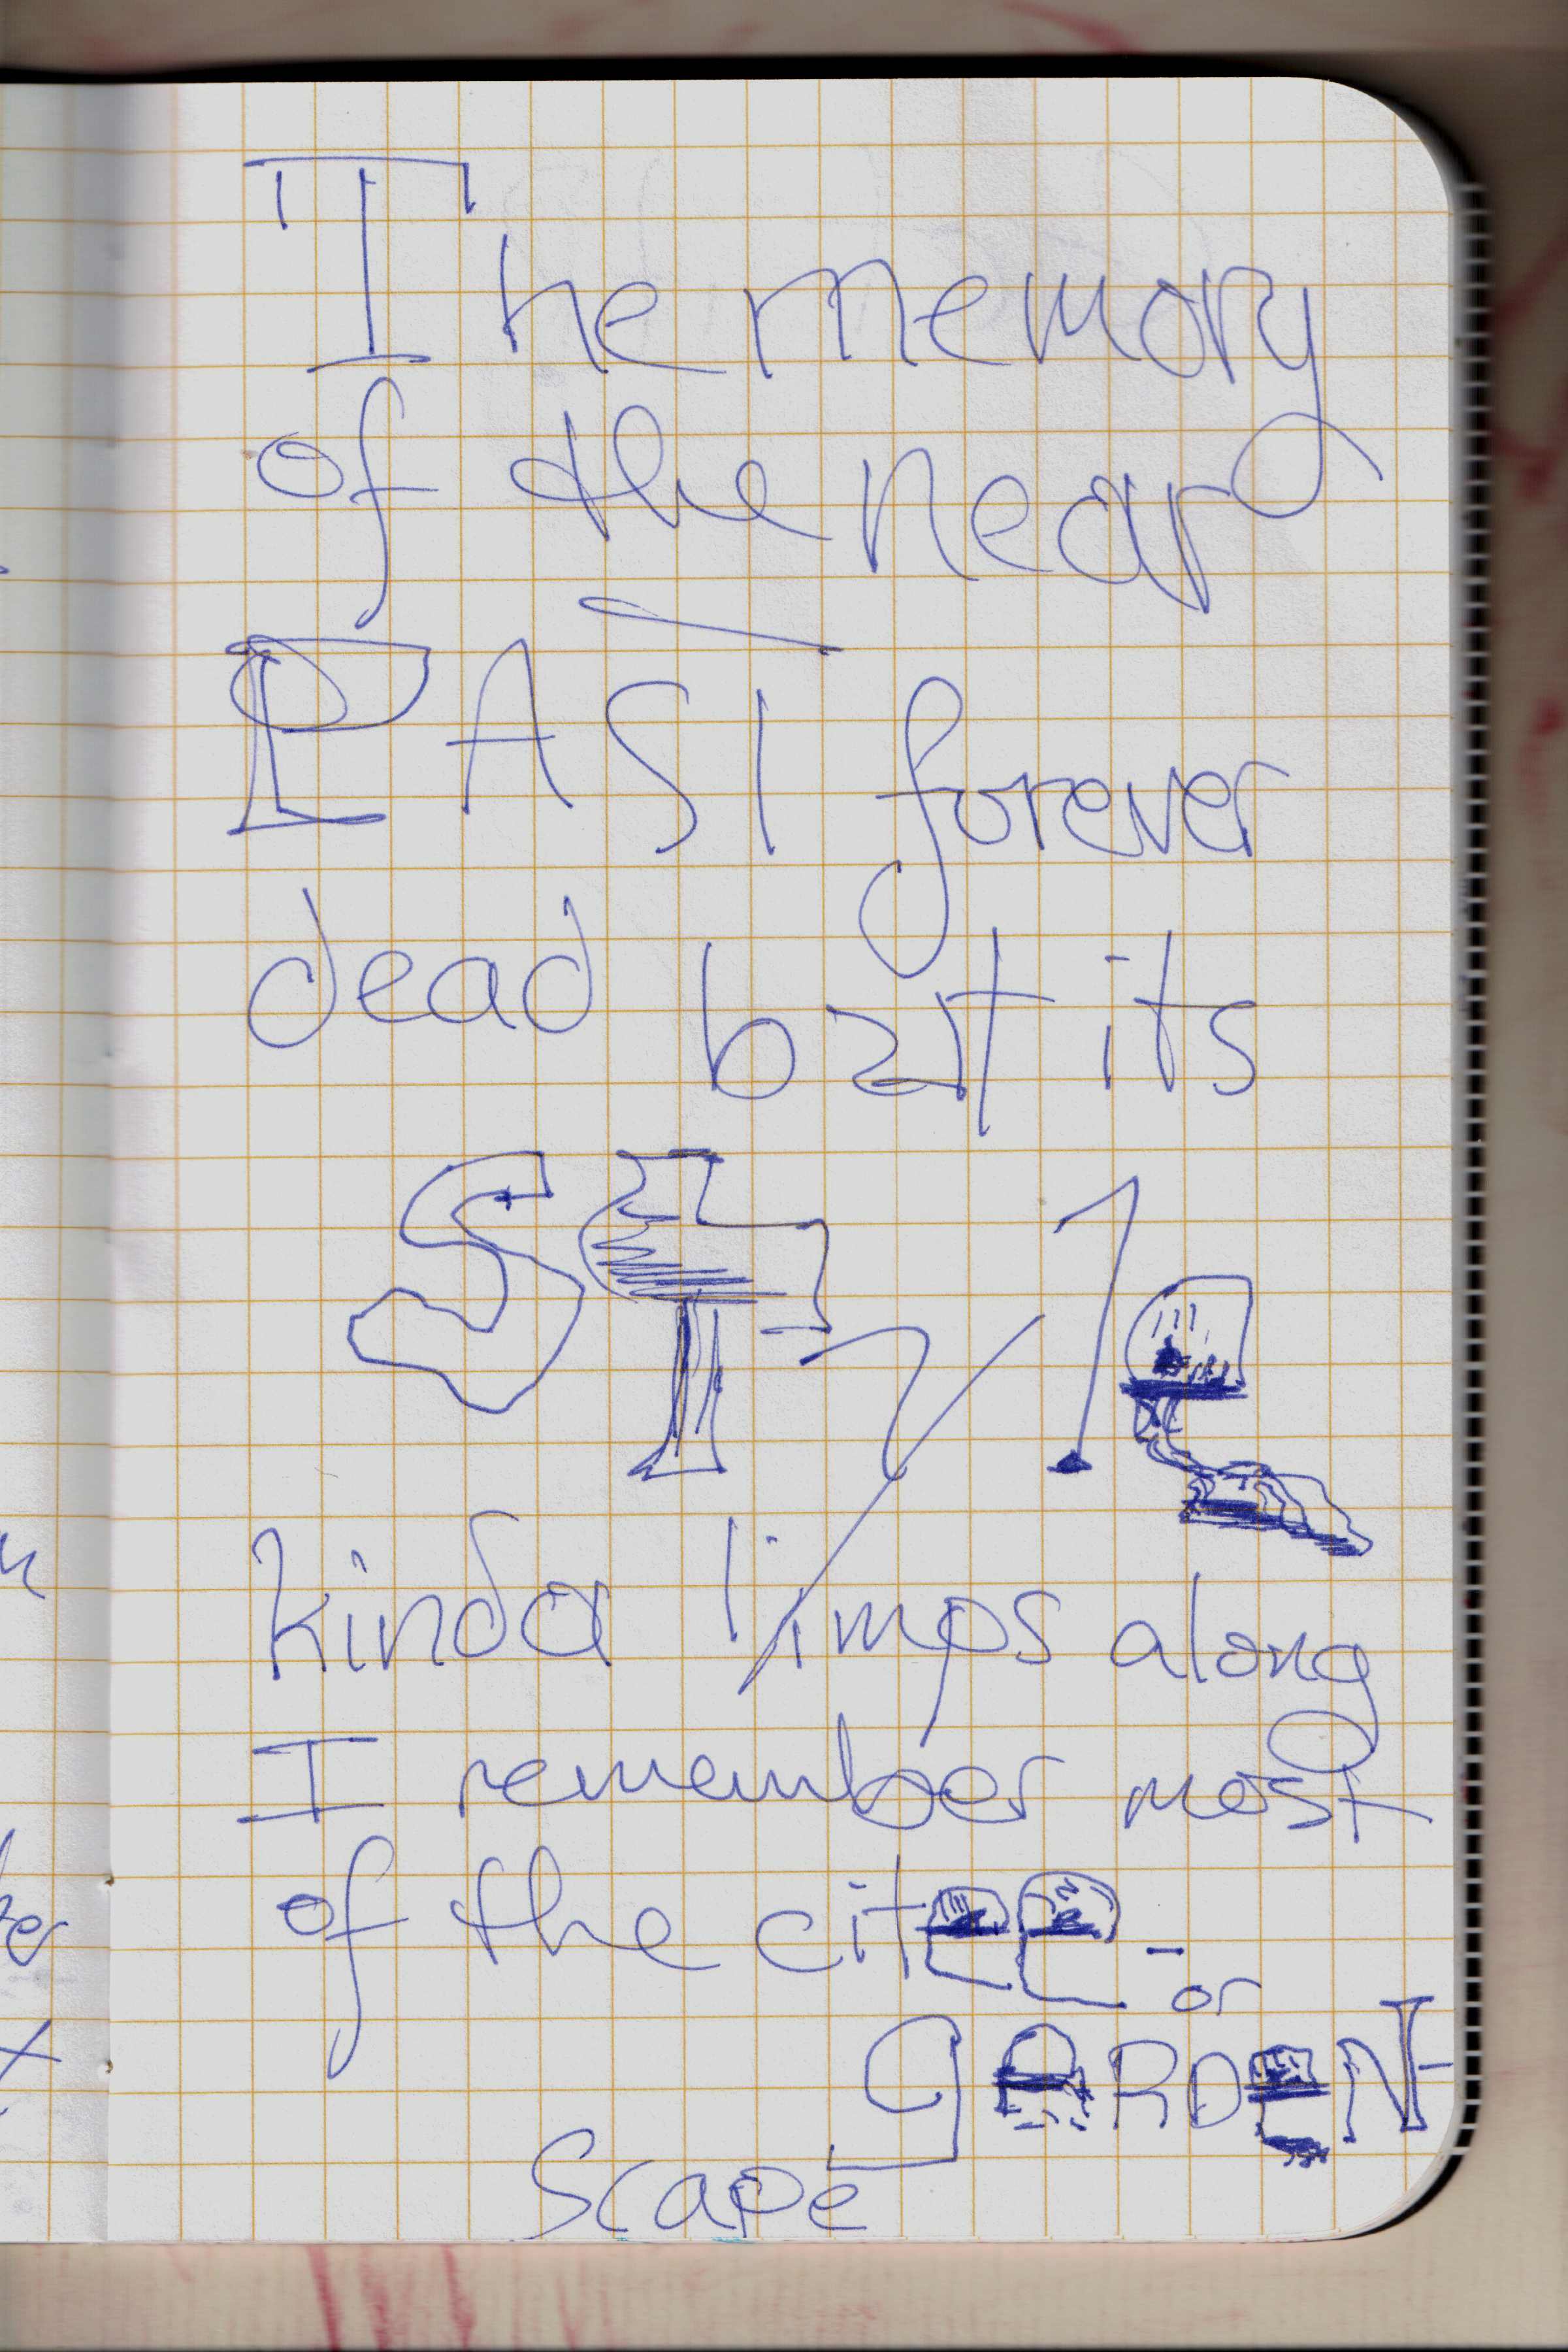 The memory
of the near
PAST forever
dead but its
style
kinda limps along
I remember most
of the citee-
or
GARDEN-
Scape